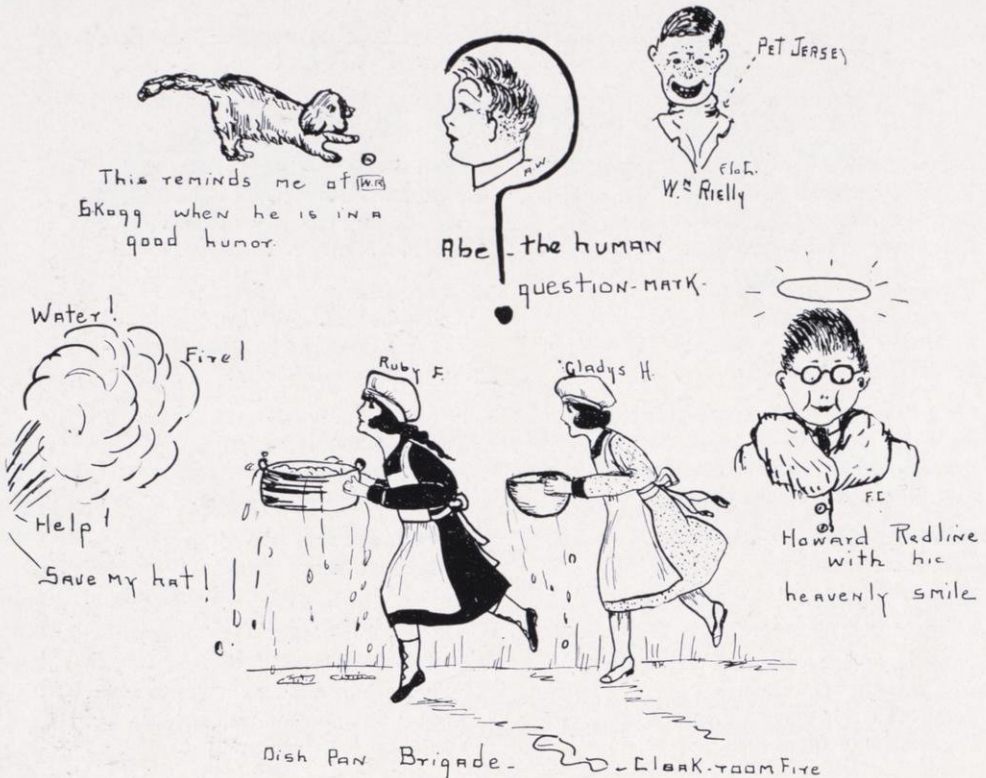 This reminds me of W.R.
Skogg when he is in a
good humor.
A.W.
Abe - the human
question-mark-
PET JERSEY
Wm Rielly
Water!
Fire!
Help!
Save my hat!
Ruby F.
Gladys H.
F.C.
Howard Redline
with his
heavenly smile
Dish Pan Brigade - Cloak-room Fire